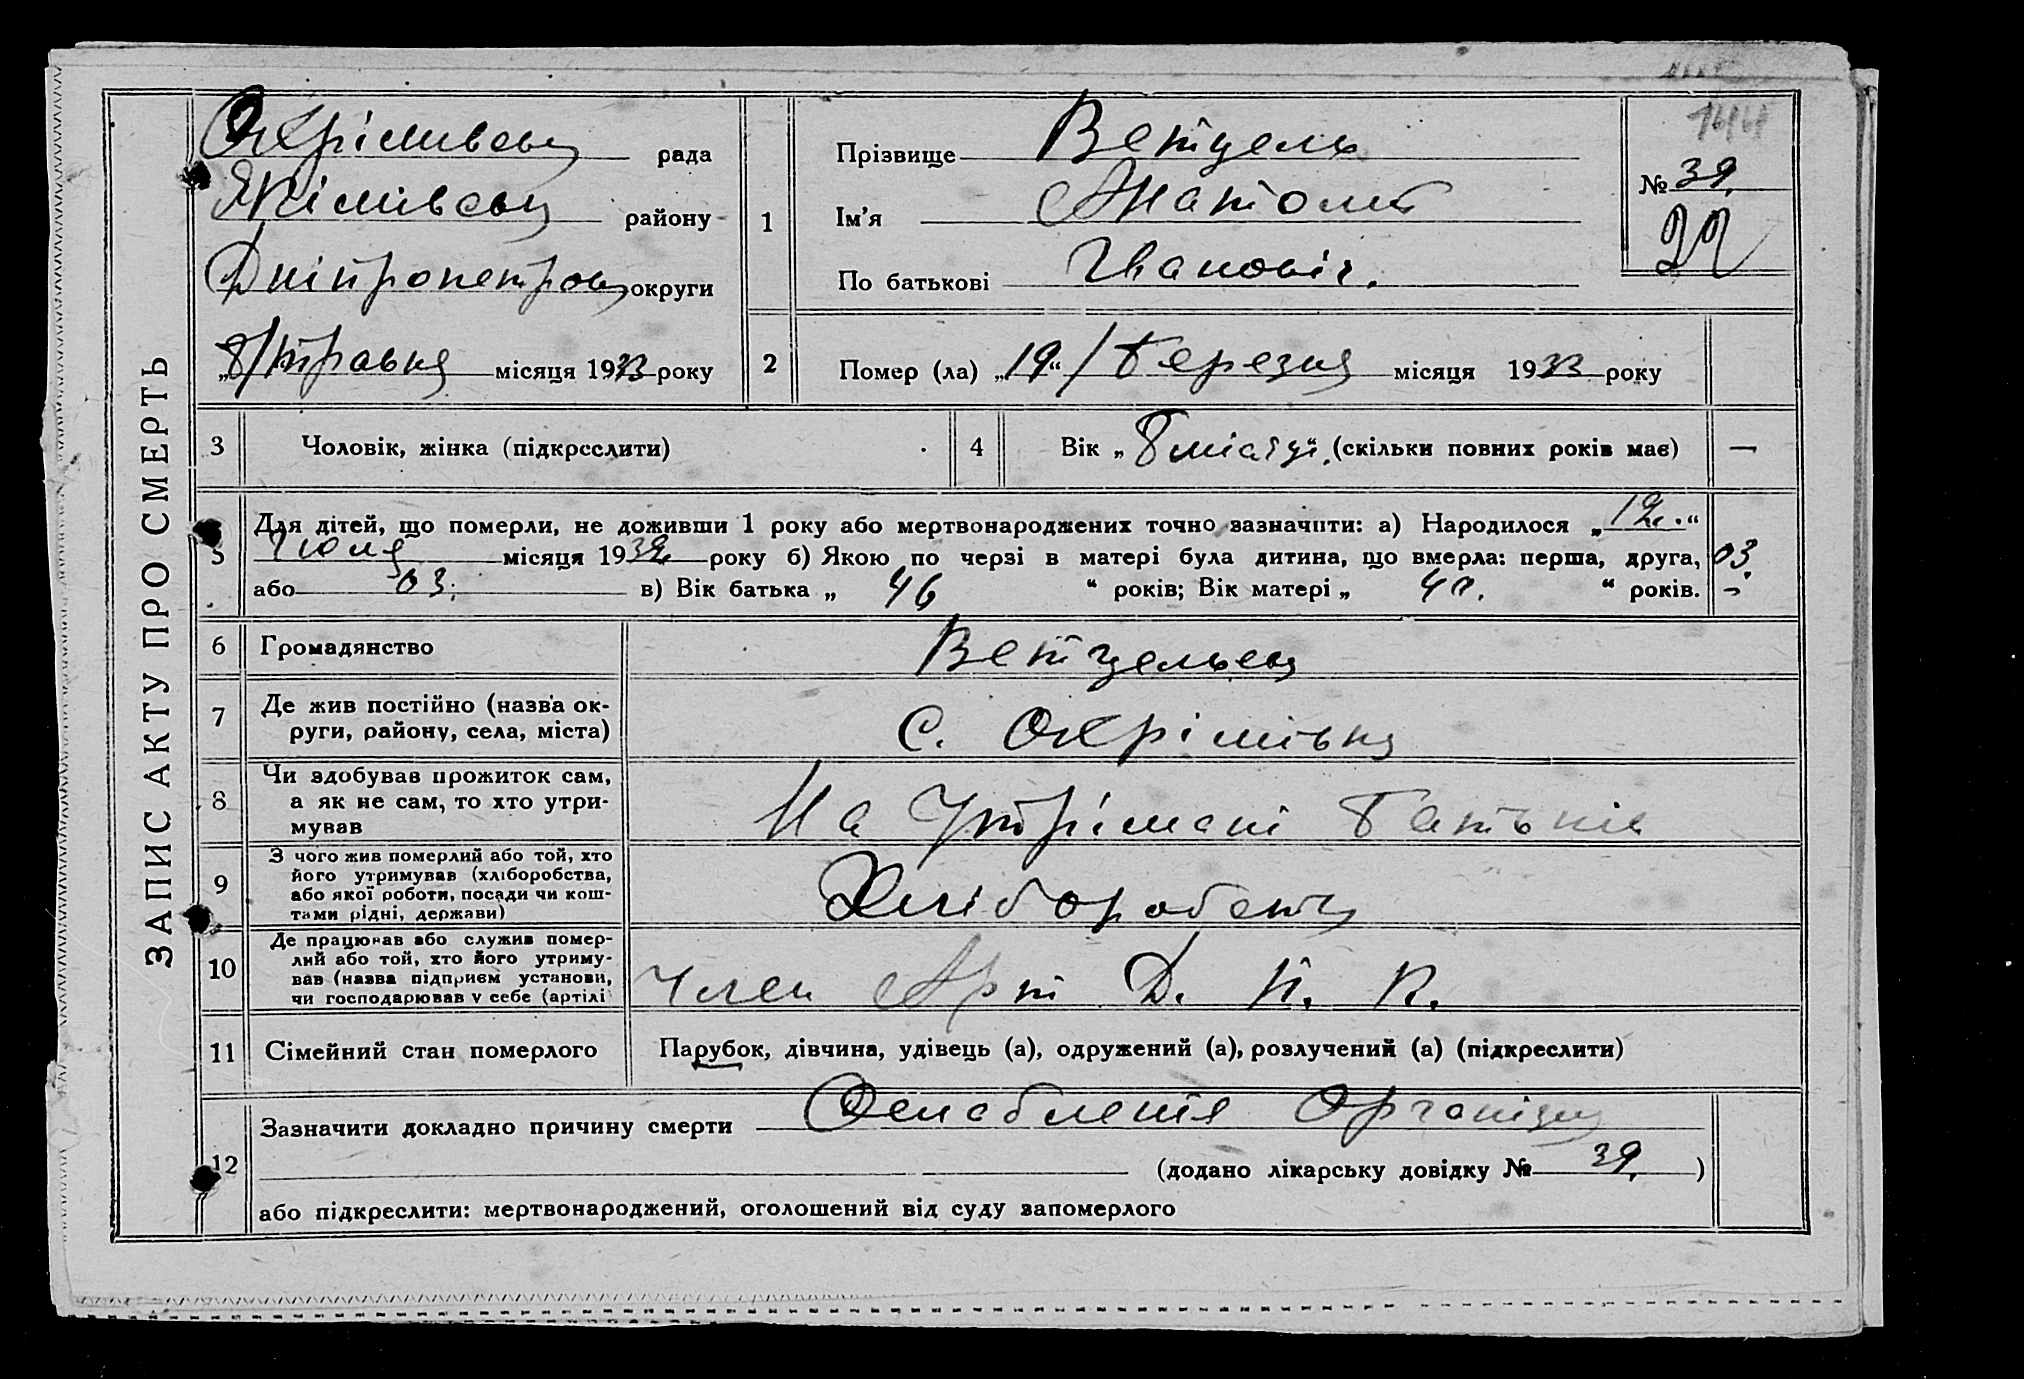 ЗАПИС АКТУ ПРО СМЕРТЬ
Охрімивськ рада
Якімівськ району
Дніпропетров округи
„8/травня місяця 1933 року
1
Прізвище Ветцель
Ім'я Анатолій
По батькові Іванович.
№ 39.
22
2
Помер (ла) „19“/березня місяця 1933 року
3
Чоловік, жінка (підкреслити)
4
Вік „8 місяці“. (скільки повних років має) —
5
Для дітей, що померли, не доживши 1 року або мертвонароджених точно зазначити: а) Народилося „12.“
Июля місяця 1932 року б) Якою по черзі в матері була дитина, що вмерла: перша, друга, 03.
або 03. в) Вік батька „ 46 “ років; Вік матері „ “ років.
6
Громадянство
7
Де жив постійно (назва ок-
руги, району, села, міста)
С. Охрімівка
8
Чи здобував прожиток сам,
а як не сам, то хто утри-
мував
На Утрімані батьків
9
З чого жив померлий або той, хто
його утримував (хліборобства,
або якої роботи, посади чи кош-
тами рідні, держави)
Хліборобств
10
Де працював або служив помер-
лий або той, хто його утриму-
вав (назва підприєм установи,
чи господарював у себе (артілі
член Арт Д. Н. К.
11
Сімейний стан померлого
Парубок, дівчина, удівець (а), одружений (а), розлучений (а) (підкреслити)
12
Зазначити докладно причину смерти Ослабления Організм
(додано лікарську довідку № 39. )
або підкреслити: мертвонароджений, оголошений від суду запомерлого